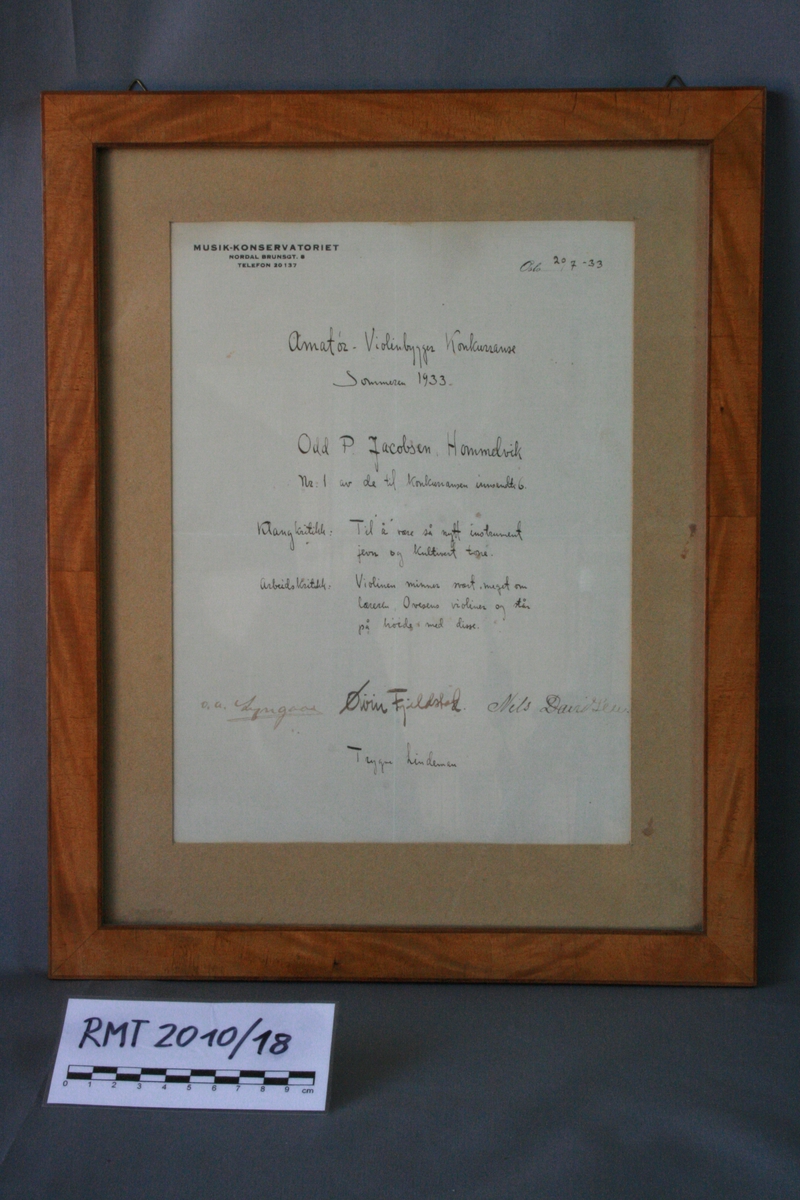 MUSIK-KONSERVATORIET
NORDAL BRUNSGT. 8
TELEFON 20137
Oslo 20/7-33
Amatør-Violinbygger Konkurranse
Sommeren 1933.
Odd P. Jacobsen, Hommelvik
Nr: 1 av de til konkurransen innsendte 6.
Klangkritikk: Til å være så nytt instrument
jevn og kultivert tone.
Arbeidskritikk: Violinen minner svært meget om
læreren, Ovesens violiner og står
på høide med disse.
Lyngaas Øivin Fjeldstad. Nils Davidsen
Trygve Lindeman
RMT 2010/18
0 1 2 3 4 5 6 7 8 9 cm